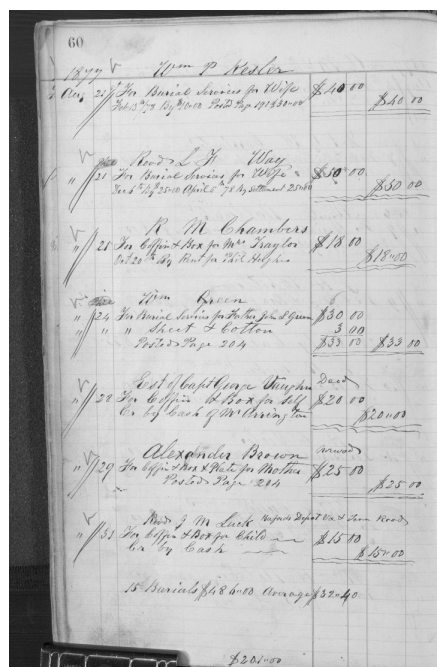 60
1877 Wm P Kesler
Aug 21 For Burial Services for Wife $40 00 $40 00
Feb 13th 78 By $10.00 Postd Page 191 $30.00
Revd L W Way
" 21 For Burial Services for Wife $50 00 $50 00
25.00 April 5th 78 By Settlement 25.00
R M Chambers
" 25 For Coffin & Box for Mrs Traylor $18 00 $18.00
Oct 20th By Rent for Phil Hughes
Wm Green
" 24 For Burial Services for Father John S Green $30 00
" " " Sheet & Cotton 3 00
Posted Page 204 $33 00 $33 00
Est of Capt George Vaughn Decd
" 28 For Coffin & Box for Self $20 00
Cr by Cash of Mr Arrington $20.00
Alexander Brown
" 29 For Coffin & Box & Plate for Mother $25 00
Posted Page 204 $25 00
Revd J M Luck Depot Va & Tenn Road
" 31 For Coffin & Box for Child $15 00
Cr by Cash $15.00
15 Burials $486.00 Average $32.40
$201.00